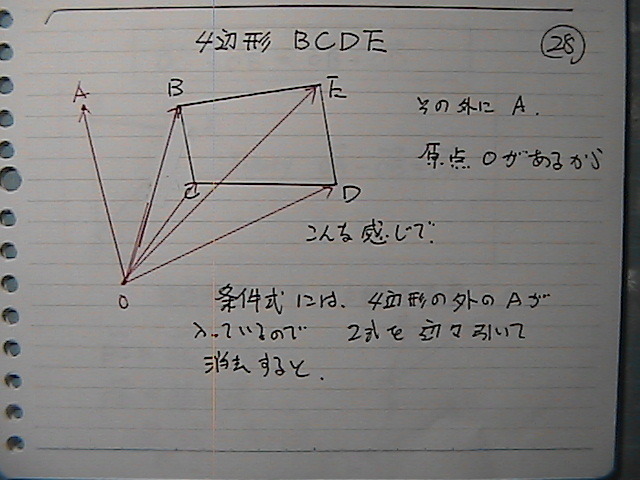 4辺形 BCDE
28
A
B
E
その外に A.
原点 Oがあるから
C
D
こんな感じで.
O
条件式には、4辺形の外のAが
入っているので 2式を辺々引いて
消去すると.